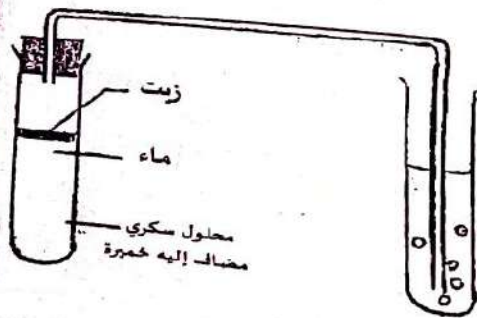 زيت
ماء
محلول سكري
مضاف إليه خميرة